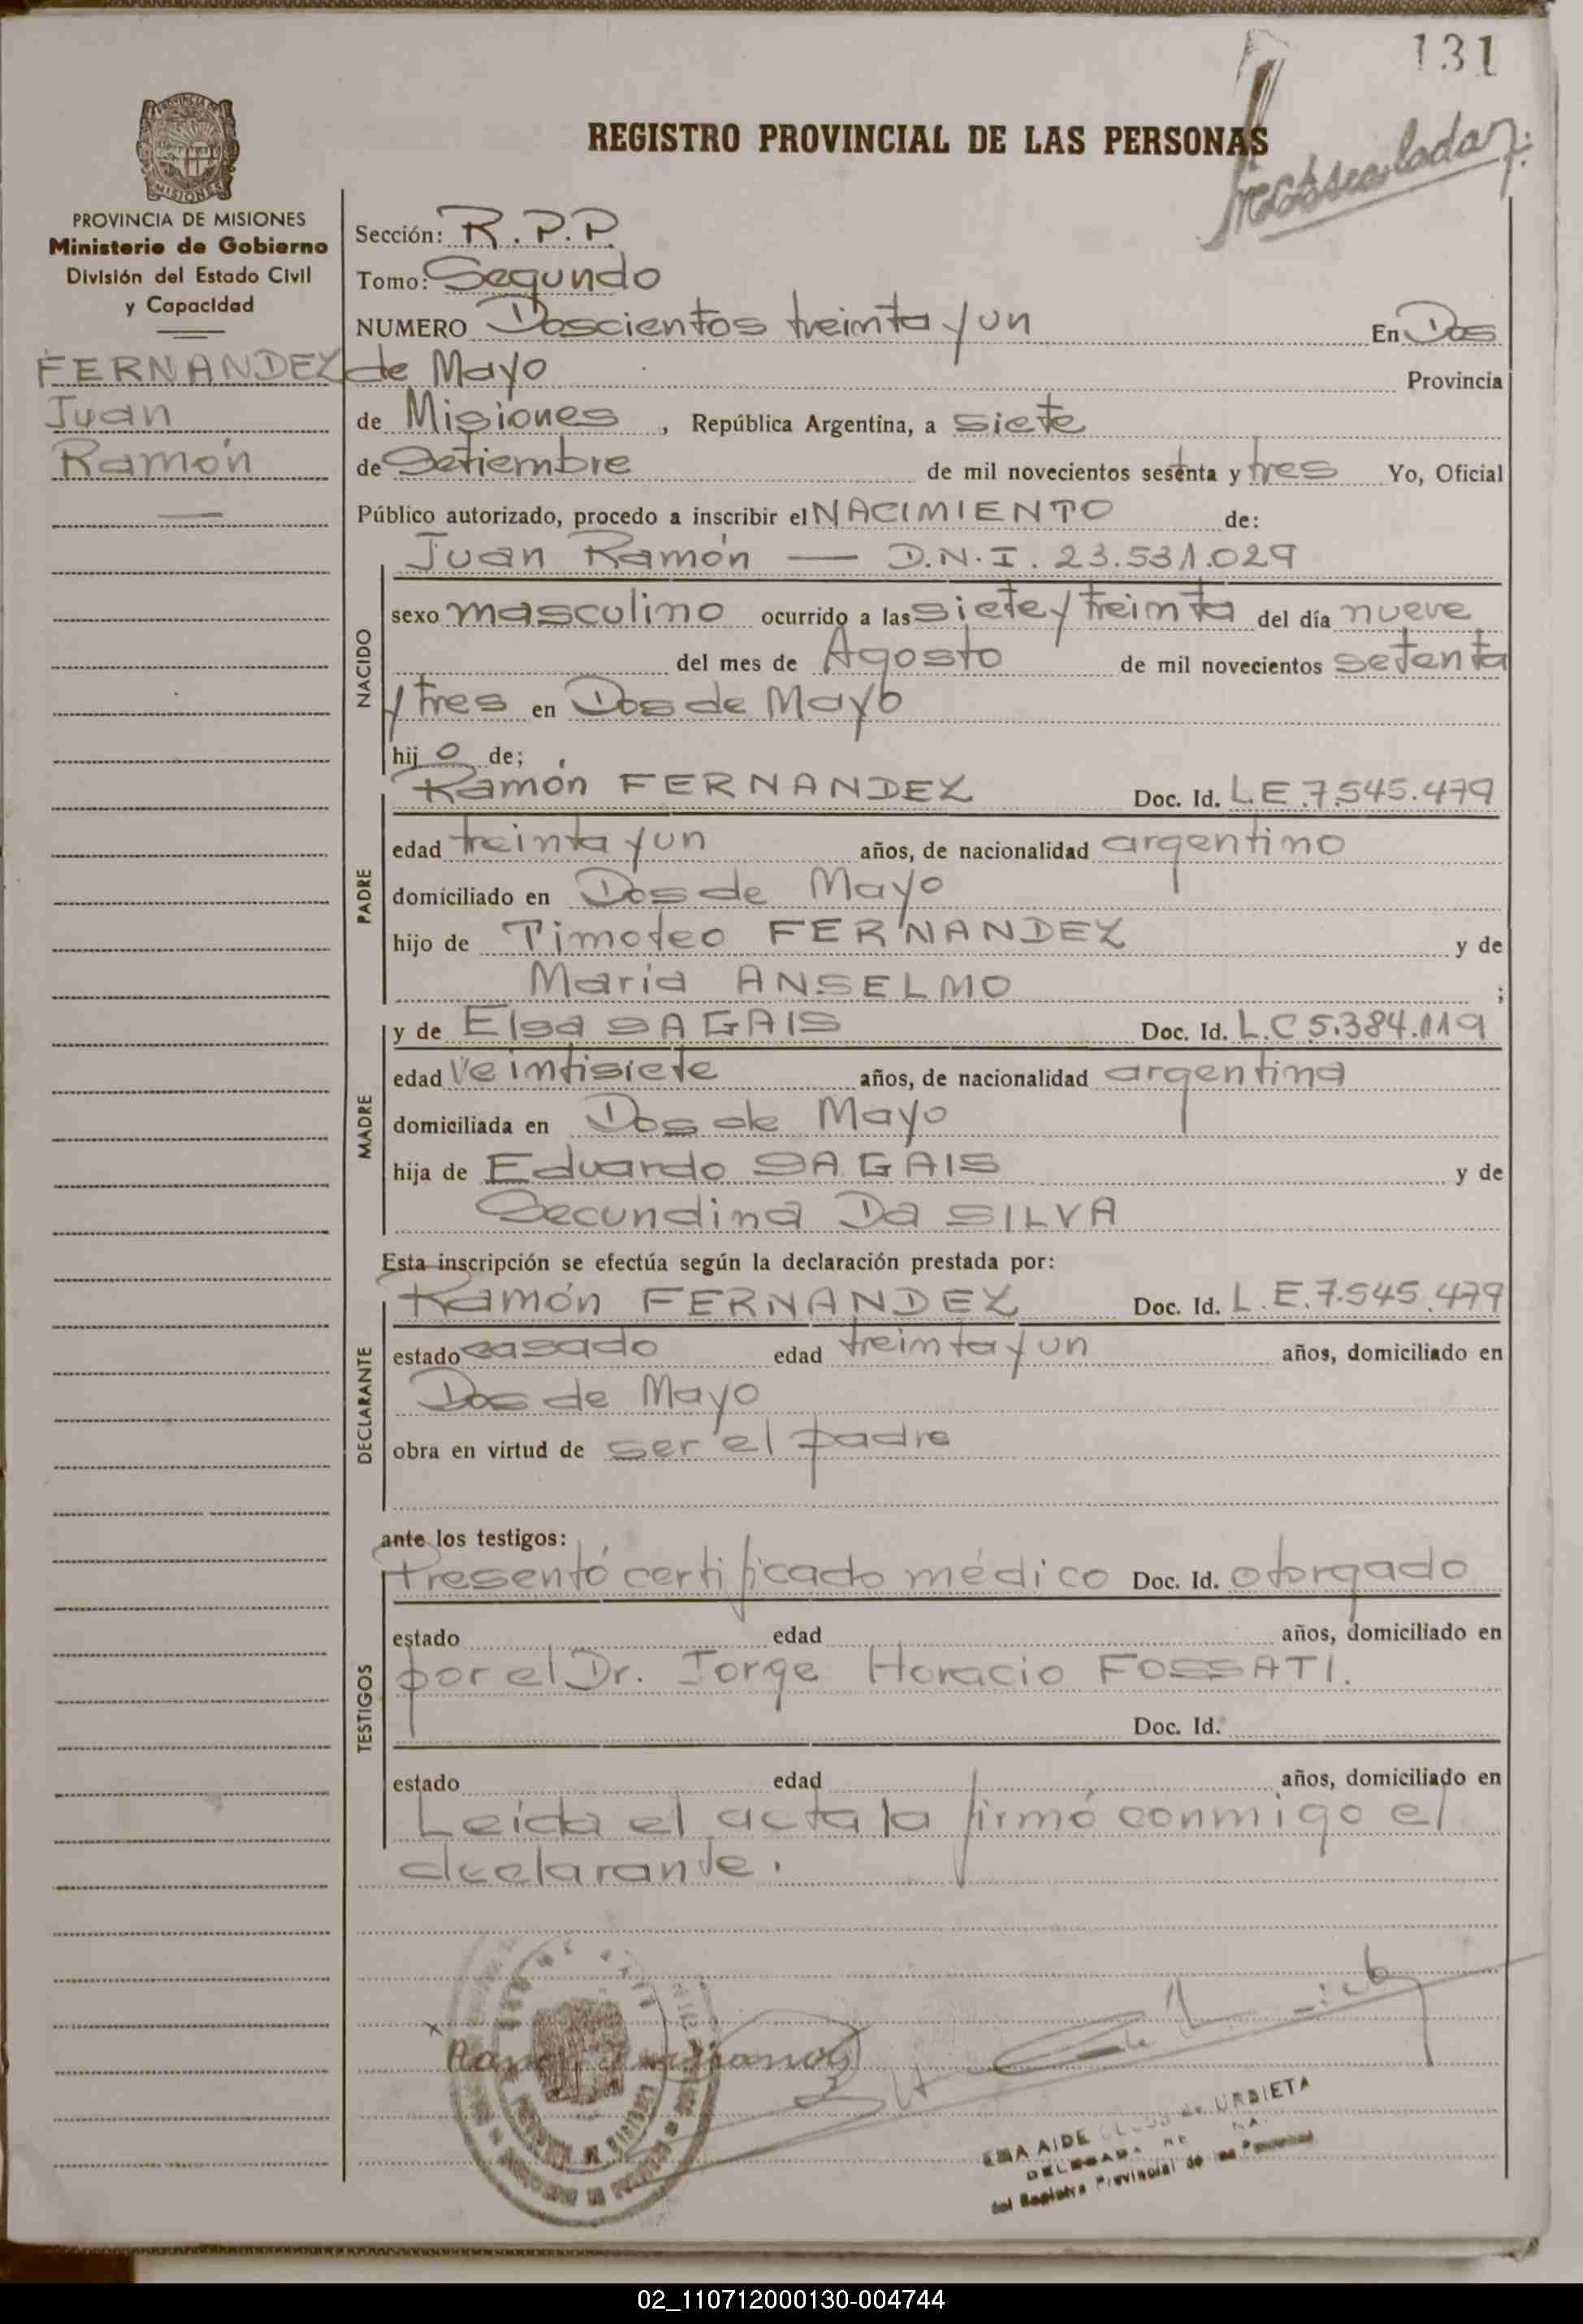 131
REGISTRO PROVINCIAL DE LAS PERSONAS
PROVINCIA DE MISIONES
Ministerio de Gobierno
División del Estado Civil
y Capacidad
FERNANDEZ
Juan
Ramón
Sección: R.P.P.
Tomo: Segundo
NUMERO Doscientos treinta y un En Dos
de Mayo Provincia
de Misiones, República Argentina, a siete
de Setiembre de mil novecientos sesenta y tres Yo, Oficial
Público autorizado, procedo a inscribir el NACIMIENTO de:
Juan Ramón — D.N.I. 23.531.029
NACIDO
sexo masculino ocurrido a las siete y treinta del día nueve
del mes de Agosto de mil novecientos setenta
y tres en Dos de Mayo
hijo de;
Ramón FERNANDEZ Doc. Id. L.E.7.545.479
PADRE
edad treinta y un años, de nacionalidad argentino
domiciliado en Dos de Mayo
hijo de Timoteo FERNANDEZ y de
María ANSELMO ;
y de Elsa SAGAIS Doc. Id. L.C 5.384.119
MADRE
edad veintisiete años, de nacionalidad argentina
domiciliada en Dos de Mayo
hija de Eduardo SAGAIS y de
Secundina Da SILVA
Esta inscripción se efectúa según la declaración prestada por:
Ramón FERNANDEZ Doc. Id. L.E.7.545.479
DECLARANTE
estado casado edad treinta y un años, domiciliado en
Dos de Mayo
obra en virtud de ser el padre
ante los testigos:
Presentó certificado médico Doc. Id. otorgado
TESTIGOS
estado edad años, domiciliado en
por el Dr. Jorge Horacio FOSSATI.
Doc. Id.
estado edad años, domiciliado en
Leída el acta la firmó conmigo el
declarante.
AIDE de URBIETA
DELEGADA
del Registro Provincial de las Personas
02_110712000130-004744